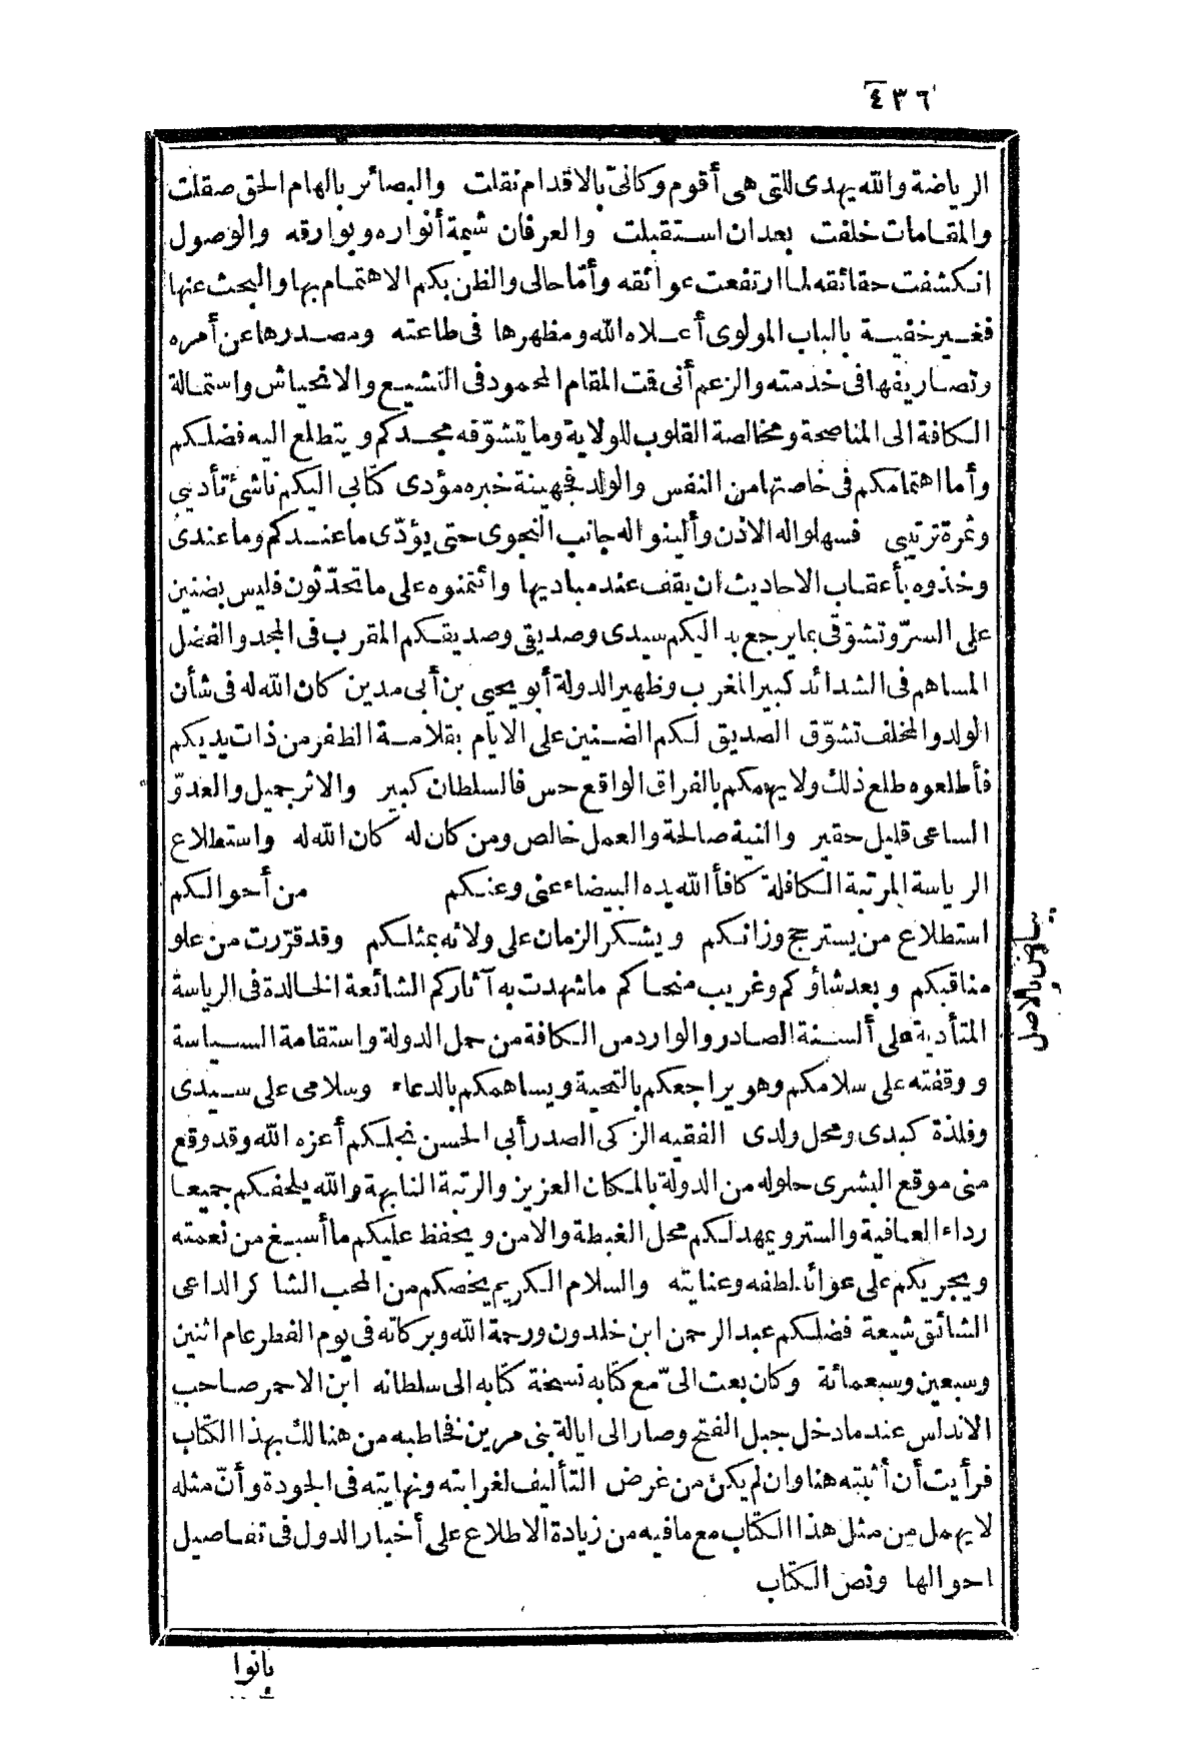 ٤٣٦
الرياضة والله يهدى للتى هى أقوم وكانىّ بالاقدام نقلت والبصائر بالهام الحق صقلت
والمقامات خلفت بعد ان استقبلت والعرفان شيمة أنواره وبوارقه والوصول
انكشفت حقائقه لما ارتفعت عوائقه وأمّا حالى والظن بكم الاهتمام بها والبحث عنها
فغير خفية بالباب المولوى أعلاه الله ومظهرها فى طاعته ومصدرها عن أمره
وتصاريفها فى خدمته والزعم أنى قت المقام المحمود فى التشيع والانحياش واستمالة
الكافة الى المناصحة ومخالصة القلوب للولاية وما يتشوّفه مجدكم ويتطلع اليه فضلكم
وأما اهتمامكم فى خاصتها من النفس والولد فجهينة خبره مؤدى كتابى اليكم ناشئ تأديبى
وثمرة تربيتى فسهلوا له الاذن وألينوا له جانب النجوى حتى يؤدّى ما عندكم وما عندى
وخذوه بأعقاب الاحاديث ان يقف عند مباديها وائتمنوه على ما تحدّثون فليس بضنين
على السرّ وتشوّقى بما يرجع به اليكم سيدى وصديقى وصديقكم المقرب فى المجد والفضل
المساهم فى الشدائد كبير المغرب وظهير الدولة أبو يحيى بن أبى مدين كان الله له فى شأن
الولد والمخلف تشوّق الصديق لكم الضنين على الايام بقلامة الظفر من ذات يديكم
فأطلعوه طلع ذلك ولا يهمكم بالفراق الواقع حس فالسلطان كبير والاثر جميل والعدوّ
الساعى قليل حقير والنية صالحة والعمل خالص ومن كان له كان الله له واستطلاع
الرياسة المرتبة الكافلة كافأ الله يده البيضاء عنى وعنكم من أحوالكم
استطلاع من يسترجح وزانكم ويشكر الزمان على ولائه بمثلكم وقد قرّرت من علو
مناقبكم وبعد شأوكم وغريب منحاكم ما شهدت به آثاركم الشائعة الخالدة فى الرياسة
المتأدية على ألسنة الصادر والوارد من الكافة من حمل الدولة واستقامة السياسة
ووقفته على سلامكم وهو يراجعكم بالتحية ويساهمكم بالدعاء وسلامى على سيدى
وفلذة كبدى ومحل ولدى الفقيه الزكى الصدر أبى الحسن نجلكم أعزه الله وقد وقع
منى موقع البشرى حلوله من الدولة بالمكان العزيز والرتبة النابهة والله يلحفكم جميعا
رداء العافية والستر ويمهد لكم محل الغبطة والامن ويحفظ عليكم ما أسبغ من نعمته
ويجريكم على عوائد لطفه وعنايته والسلام الكريم يخصكم من المحب الشاكر الداعى
الشائق شيعة فضلكم عبد الرحمن ابن خلدون ورحمة الله وبركاته فى يوم الفطر عام اثنين
وسبعين وسبعمائة وكان بعث الىّ مع كتابه نسخة كتابه الى سلطانه ابن الاحمر صاحب
الاندلس عندما دخل جبل الفتح وصار الى ايالة بنى مرين فخاطبه من هنالك بهذا الكتاب
فرأيت أن أثبته هنا وان لم يكن من غرض التأليف لغرابته ونهايته فى الجودة وأنّ مثله
لا يهمل من مثل هذا الكتاب مع ما فيه من زيادة الاطلاع على أخبار الدول فى تفاصيل
احوالها ونص الكتاب
بياض بالاصل
بانوا